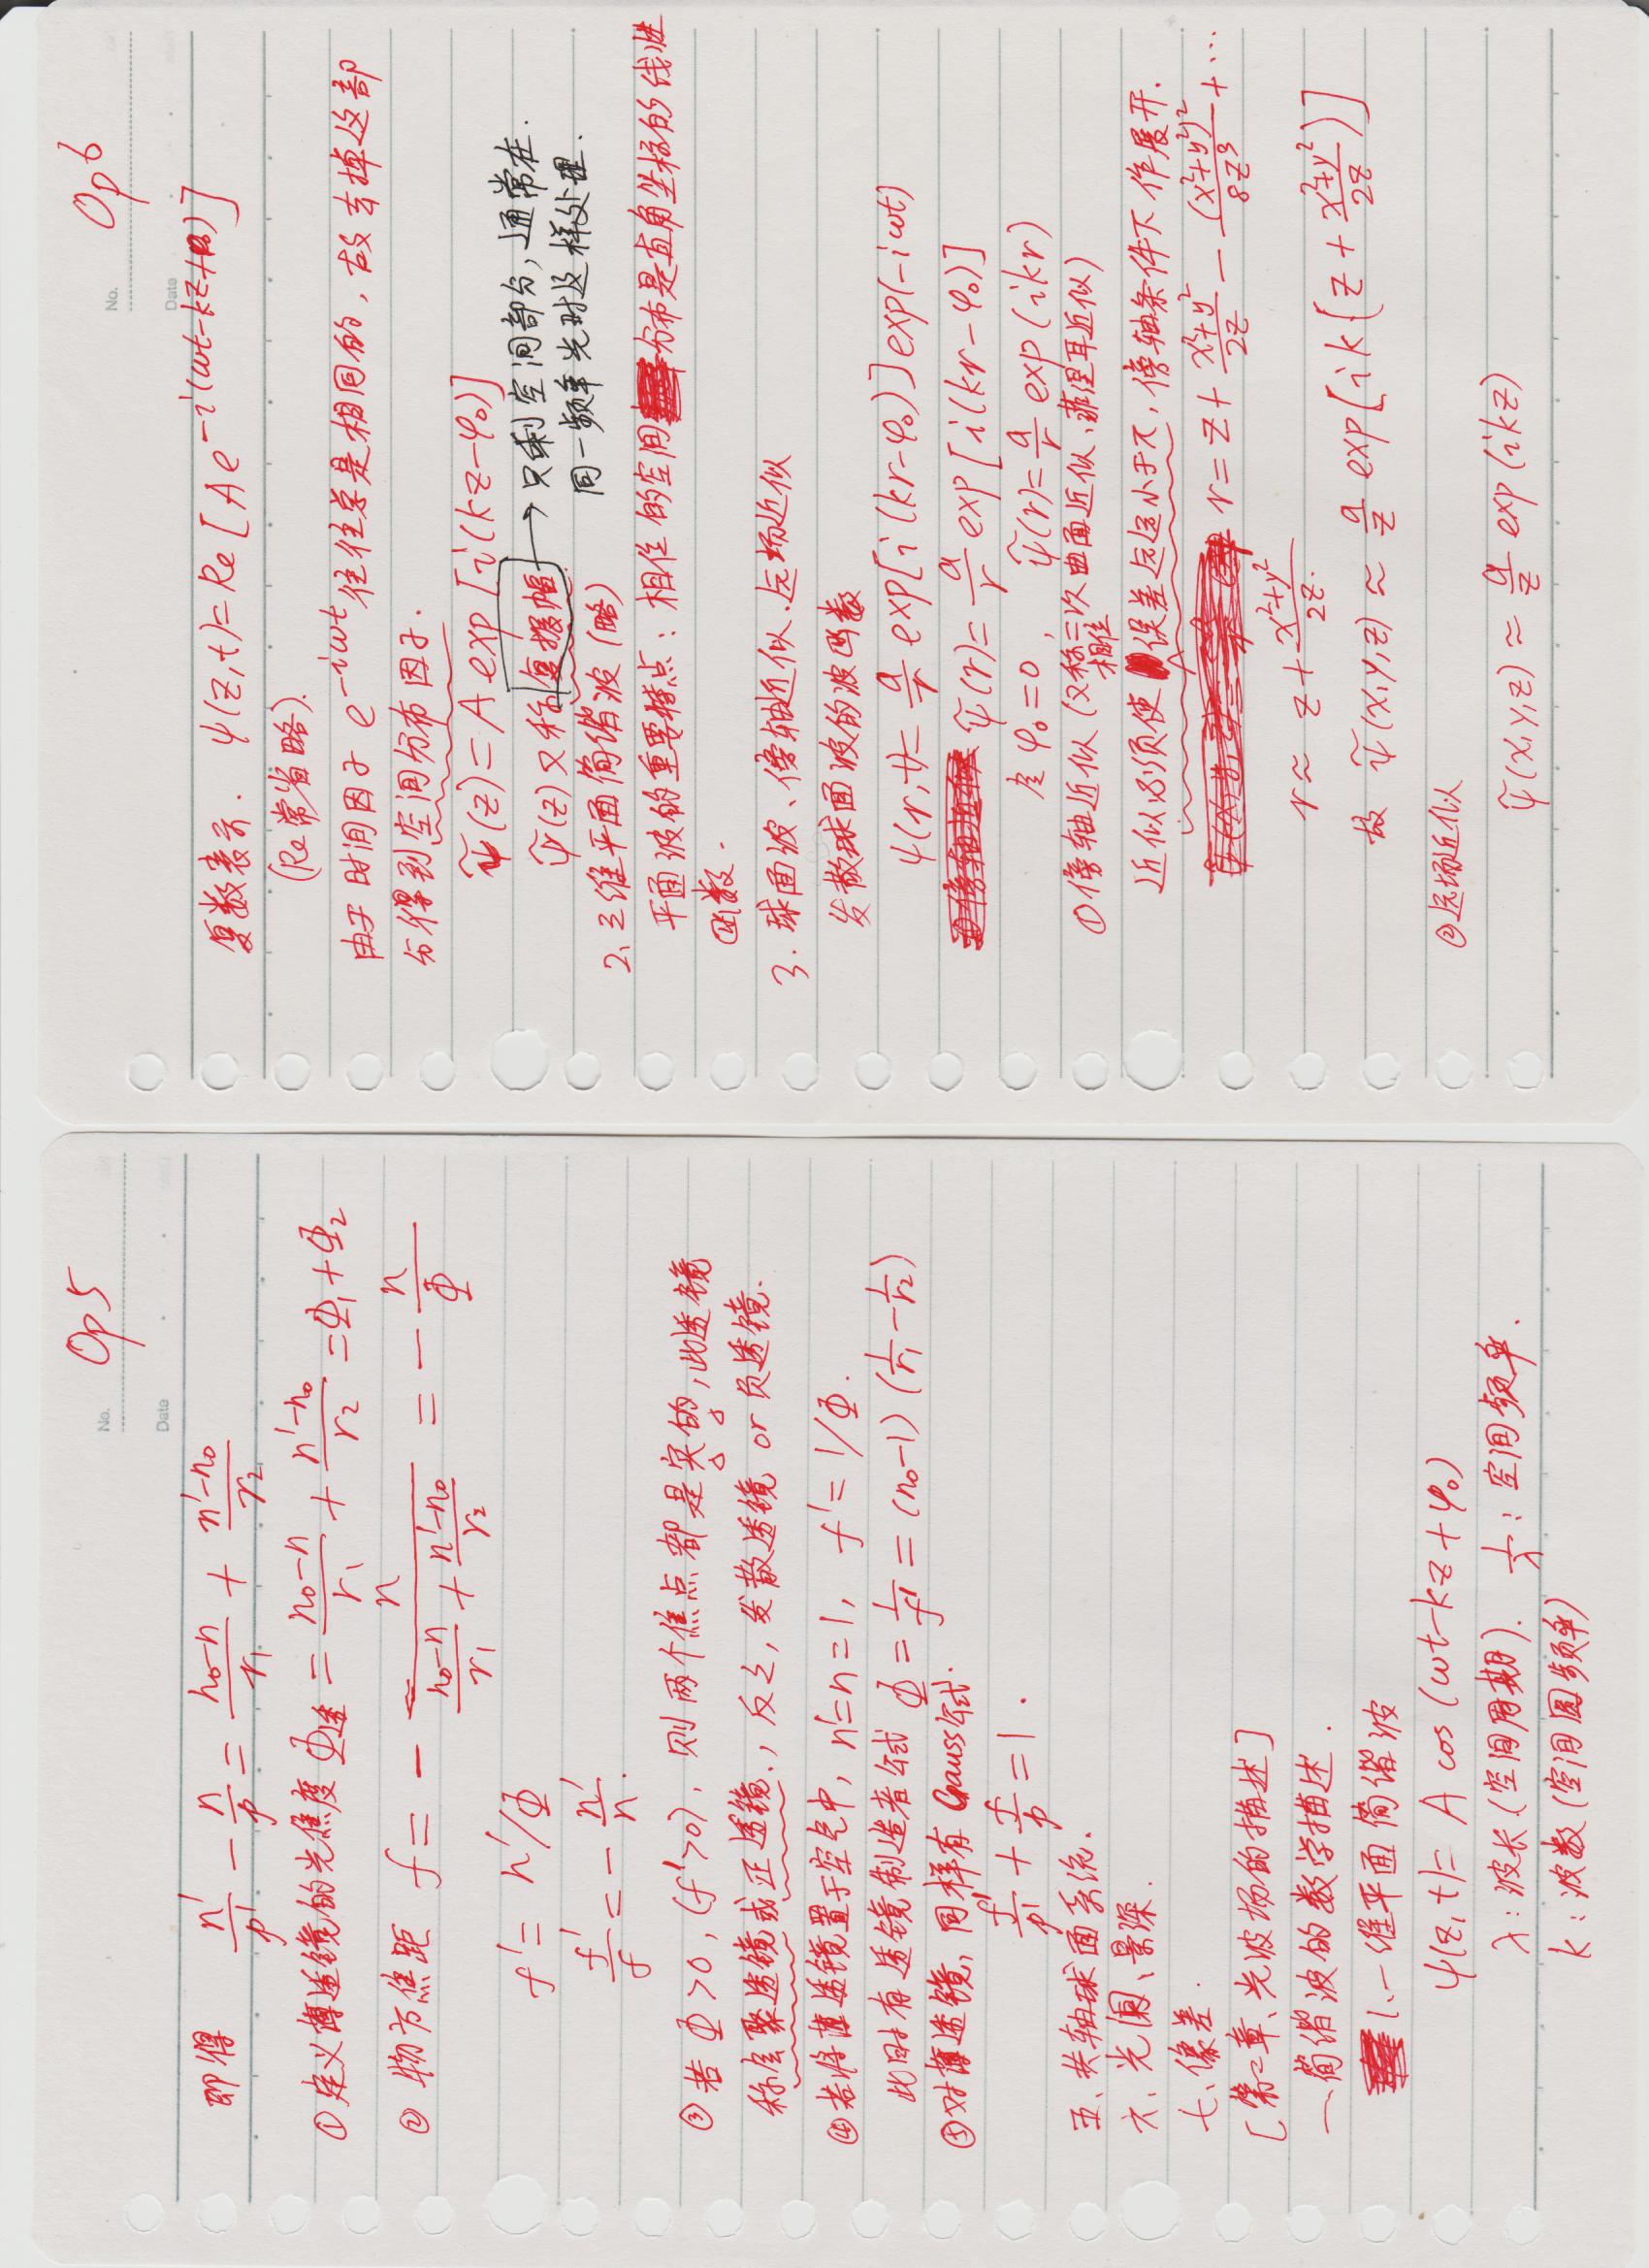 No. Op5
Date
即得 n'/p' - n/p = (n₀-n)/r₁ + (n'-n₀)/r₂
①定义薄透镜的光焦度 Φ透 = (n₀-n)/r₁ + (n'-n₀)/r₂ = Φ₁+Φ₂
② 物方焦距 f = - n/((n₀-n)/r₁ + (n'-n₀)/r₂) = - n/Φ
f' = n'/Φ
f'/f = - n'/n.
③ 若 Φ>0, (f'>0), 则两个焦点都是实的, 此透镜
称会聚透镜或正透镜., 反之, 发散透镜 or 负透镜.
④若将薄透镜置于空气中, n'=n=1, f'=1/Φ.
此时有透镜制造者公式 Φ = 1/f' = (n₀-1) (1/r₁ - 1/r₂)
⑤对薄透镜, 同样有 Gauss公式.
f'/p' + f/p = 1.
五、共轴球面系统.
六、光阑、景深.
七、像差.
[第二章、光波场的描述]
一、简谐波的数学描述.
1、一维平面简谐波
ψ(z,t) = A cos(ωt-kz+φ₀)
λ: 波长(空间周期). 1/λ: 空间频率.
k: 波数(空间圆频率)
No. Op6
Date
复数表示. ψ(z,t)=Re[Ae^{-i(ωt-kz+φ₀)}]
(Re常省略).
由于时间因子 e^{-iωt} 往往总是相同的, 故去掉这部
分得到空间分布因子.
ψ̃(z) = A exp[i(kz-φ₀)]
ψ̃(z)又称复振幅 → 只剩空间部分, 通常在.
同一频率光时这样处理.
2、三维平面简谐波(略)
平面波的重要特点: 相位的空间分布是直角坐标的线性
函数.
3. 球面波、傍轴近似、远场近似
发散球面波的波函数
ψ(r,t) = a/r exp[i(kr-φ₀)]exp(-iωt)
ψ̃(r) = a/r exp[i(kr-φ₀)]
令 φ₀=0, ψ̃(r) = a/r exp(ikr)
①傍轴近似(又称二次曲面近似、菲涅耳近似)
近似必须使相位误差远远小于π, 傍轴条件下作展开.
r = z + (x²+y²)/2z - (x²+y²)²/8z³ + ···
r ≈ z + (x²+y²)/2z.
故 ψ̃(x,y,z) ≈ a/z exp[ik(z + (x²+y²)/2z)]
②远场近似
ψ̃(x,y,z) ≈ a/z exp(ikz)